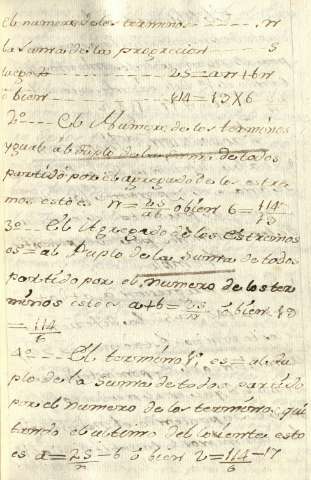 el numero de los terminos ---- n
la suma de la progrecion ---- s
luego ---- 2s = an + bn
ó bien ---- 114 = 19 x 6
2º -- El Numero de los terminos
ygual al duplo de la suma de todos
partido por el agregado de los estre
mos esto es n = 2s/ab ó bien 6 = 114/19
3º -- El Agregado de los Estremos
es = al Duplo de la suma de todos
partido por el numero de los ter
minos esto es a + b = 2s/n ó bien 19
= 114/6
4º -- El termino 1º es = al du
plo de la suma de todos partido
por el numero de los terminos qui
tando el ultimo del cosiente esto
es a = 2s/n - b ó bien 2 = 114/6 - 17